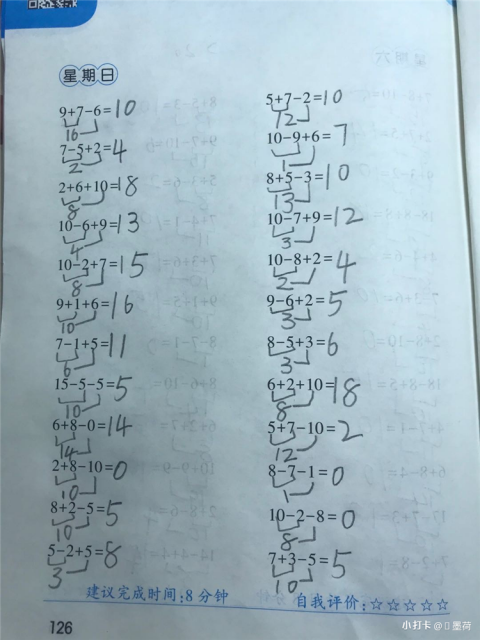 口算题
星期日
9+7-6=10
16
7-5+2=4
2
2+6+10=18
8
10-6+9=13
4
10-2+7=15
8
9+1+6=16
10
7-1+5=11
6
15-5-5=5
10
6+8-0=14
14
2+8-10=0
10
8+2-5=5
10
5-2+5=8
3
5+7-2=10
12
10-9+6=7
1
8+5-3=10
13
10-7+9=12
3
10-8+2=4
2
9-6+2=5
3
8-5+3=6
3
6+2+10=18
8
5+7-10=2
12
8-7-1=0
1
10-2-8=0
8
7+3-5=5
10
建议完成时间:8分钟
自我评价:☆☆☆☆☆
126
小打卡@墨荷